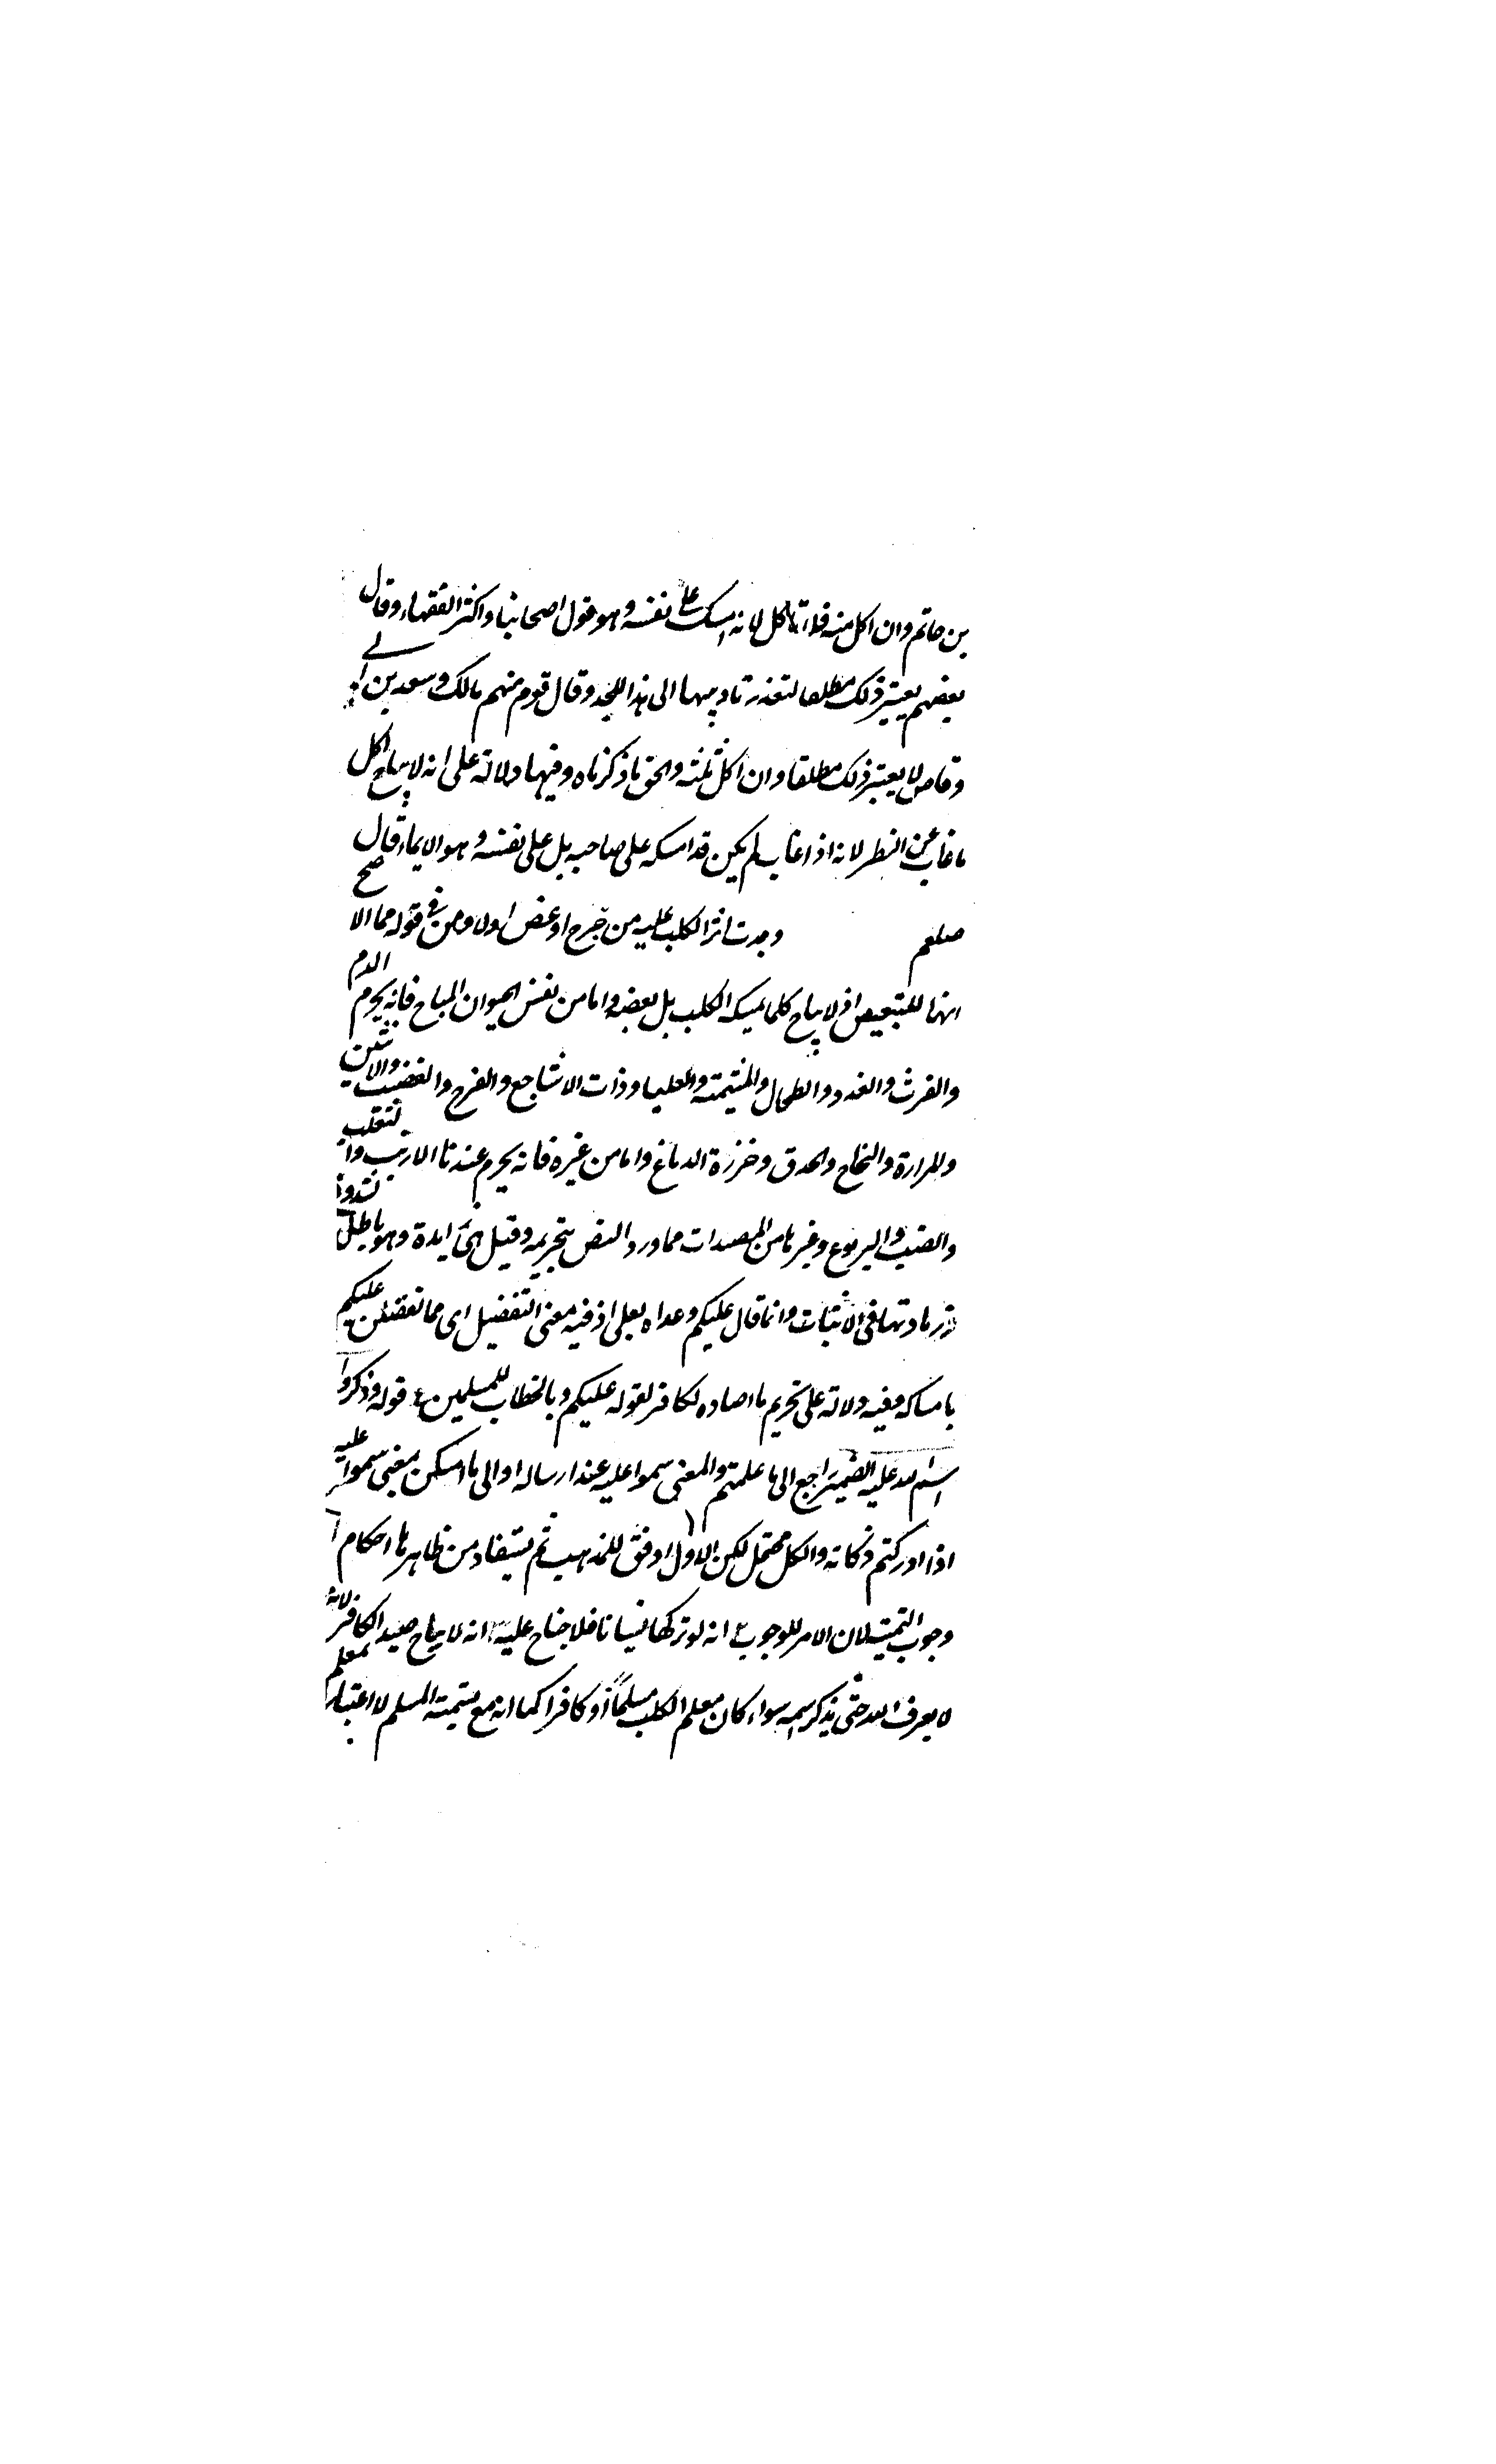 بن حاتم وان اكل منه فلا تاكل لانه امسك على نفسه وهو قول اصحابنا واكثر الفقهاء وقال
بعضهم يعتبر ذلك مطلقا لتعذر تاديبها الى هذا الحد وقال قوم منهم مالك وسعد بن ابي
وقاص لا يعتبر ذلك مطلقا وان اكل ثلثه والحق ما ذكرناه وفيها دلالة على انه لا يباح اكل
ما غاب عن النظر لانه اذا غاب لم يكن قد امسكه على صاحبه بل على نفسه وهو الايماء قال
صلعم وجدت اثر الكلب عليه من جرح او عض اولا ومن في قوله مما الا صح
انها للتبعيض اذ لا يباح كلما يمسكه الكلب بل بعضه واما من نفس الحيوان المباح فانه يحرم الدم
والفرث والغدد والطحال والمشيمة والعلبا وذات الاشاجع والفرج والقضيب والانثيين
والمرارة والنخاع والحدق وخرزة الدماغ واما من غيره فانه يحرم عندنا الارنب والثعلب
والضب واليربوع وغيرها من المصيدات مما ورد النص بتحريمه وقيل هي زايدة وهو باطل لشذوذ
زيادتها في الاثبات وانما قال عليكم وعداه بعلى اذ فيه معنى التفضيل اى مما تفضلن عليكم
بامساكه وفيه دلالة على تحريم ما اصاده لكافر لقوله عليكم وبالخطاب للمسلمين قوله وذكروا
اسم الله عليه الضمير راجع الى ما علمتم والمعنى سموا عليه عند ارساله او الى ما امسكن بمعنى سموا عليه
اذا ادركتم ذكاته والكل محتمل لكن الاول اوفق للمذهب ثم يستفاد من ظاهرها احكام ا
وجوب التسمية لان الامر للوجوب ب انه لو تركها نسيانا فلا جناح عليه انه لا يباح صيد الكافر لانه
لا يعرف الله حتى يذكر اسمه سواء كان معلم الكلب مسلماً او كافرا كما انه مع تسمية المسلم لا اعتبار بمعلم